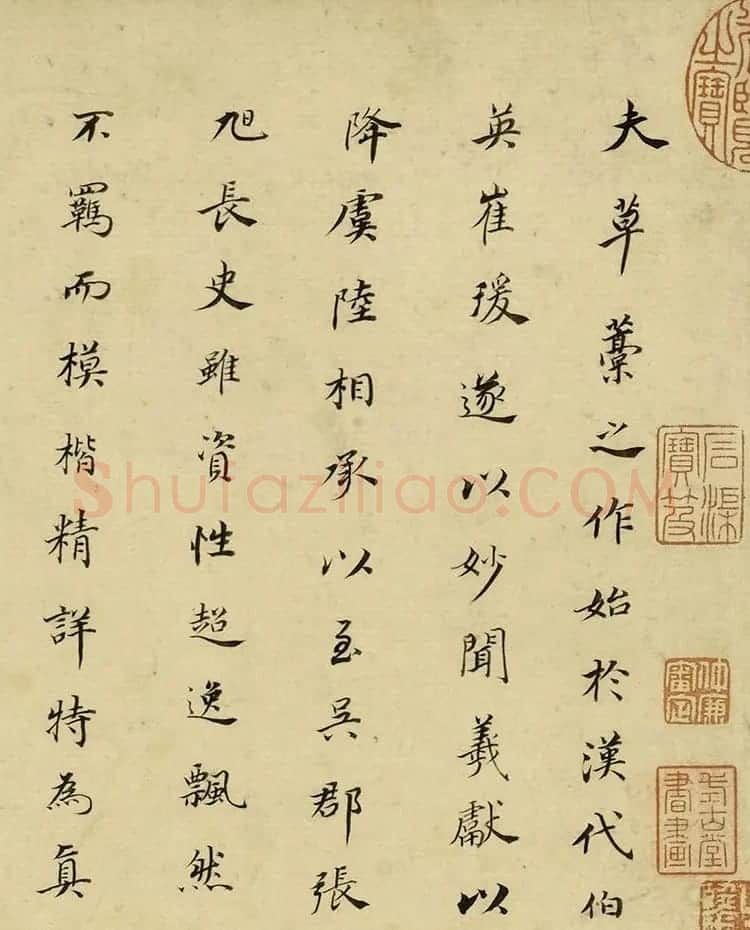 夫草藁之作始於漢代伯
英崔瑗遂以妙聞羲獻以
降虞陸相承以至吳郡張
旭長史雖資性超逸飄然
不羈而模楷精詳特為真
石渠寶笈
Shufaziliao.COM